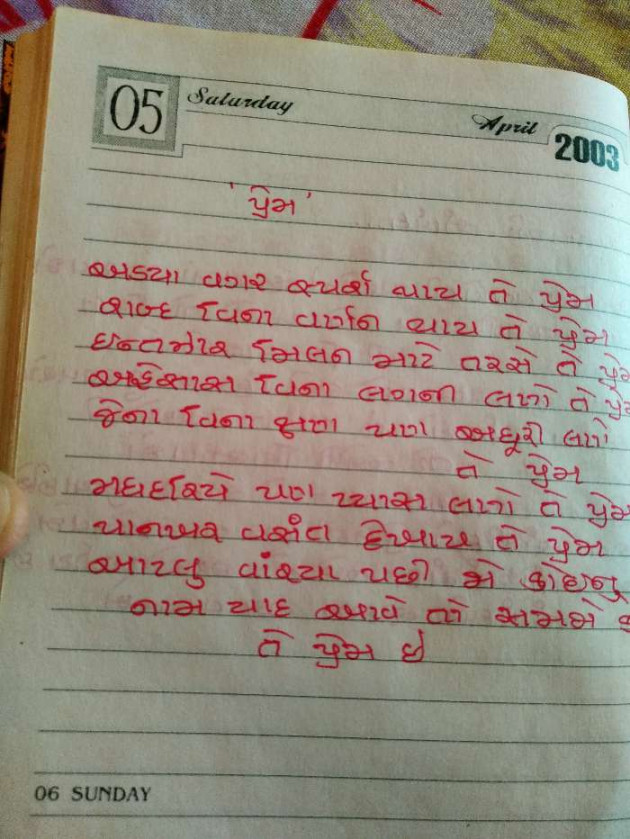 05 Saturday April 2003
' પ્રેમ '
અડયા વગર સ્પર્શ થાય તે પ્રેમ
શબ્દ વિના વર્ણન થાય તે પ્રેમ
ઇન્તજાર મિલન માટે તરસે તે પ્રેમ
અહેસાસ વિના લગની લાગે તે પ્રેમ
જેના વિના ક્ષણ પણ અધૂરી લાગે
તે પ્રેમ
મધદરિયે પણ પ્યાસ લાગે તે પ્રેમ
પાનખર વસંત દેખાય તે પ્રેમ
આટલુ વાંચ્યા પછી જો કોઇનુ
નામ યાદ આવે તો સમજો
તે પ્રેમ છે
06 SUNDAY